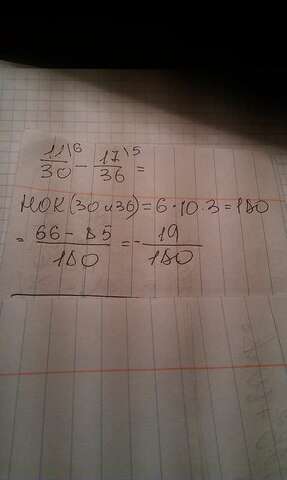 11\6/30 - 17\5/36 =
НОК(30 и 36) = 6·10·3 = 180
= 66 - 85/180 = - 19/180